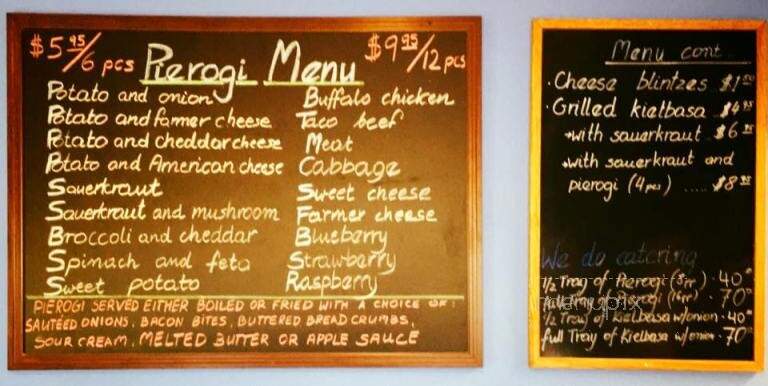 $5.95/6 pcs Pierogi Menu $9.95/12 pcs
Potato and onion
Potato and farmer cheese
Potato and cheddar cheese
Potato and American cheese
Sauerkraut
Sauerkraut and mushroom
Broccoli and cheddar
Spinach and feta
Sweet potato
Buffalo chicken
Taco beef
Meat
Cabbage
Sweet cheese
Farmer cheese
Blueberry
Strawberry
Raspberry
PIEROGI SERVED EITHER BOILED OR FRIED WITH A CHOICE OF
SAUTÉED ONIONS, BACON BITES, BUTTERED BREAD CRUMBS,
SOUR CREAM, MELTED BUTTER OR APPLE SAUCE
Menu cont.
· Cheese blintzes $1.50
· Grilled kielbasa $4.95
*with sauerkraut $6
*with sauerkraut and
pierogi (4 pcs) .... $8.95
We do catering
1/2 Tray of Pierogi · 40
Pierogi · 70
1/2 Tray of Kielbasa w/onion · 40
full Tray of Kielbasa w/onion · 70